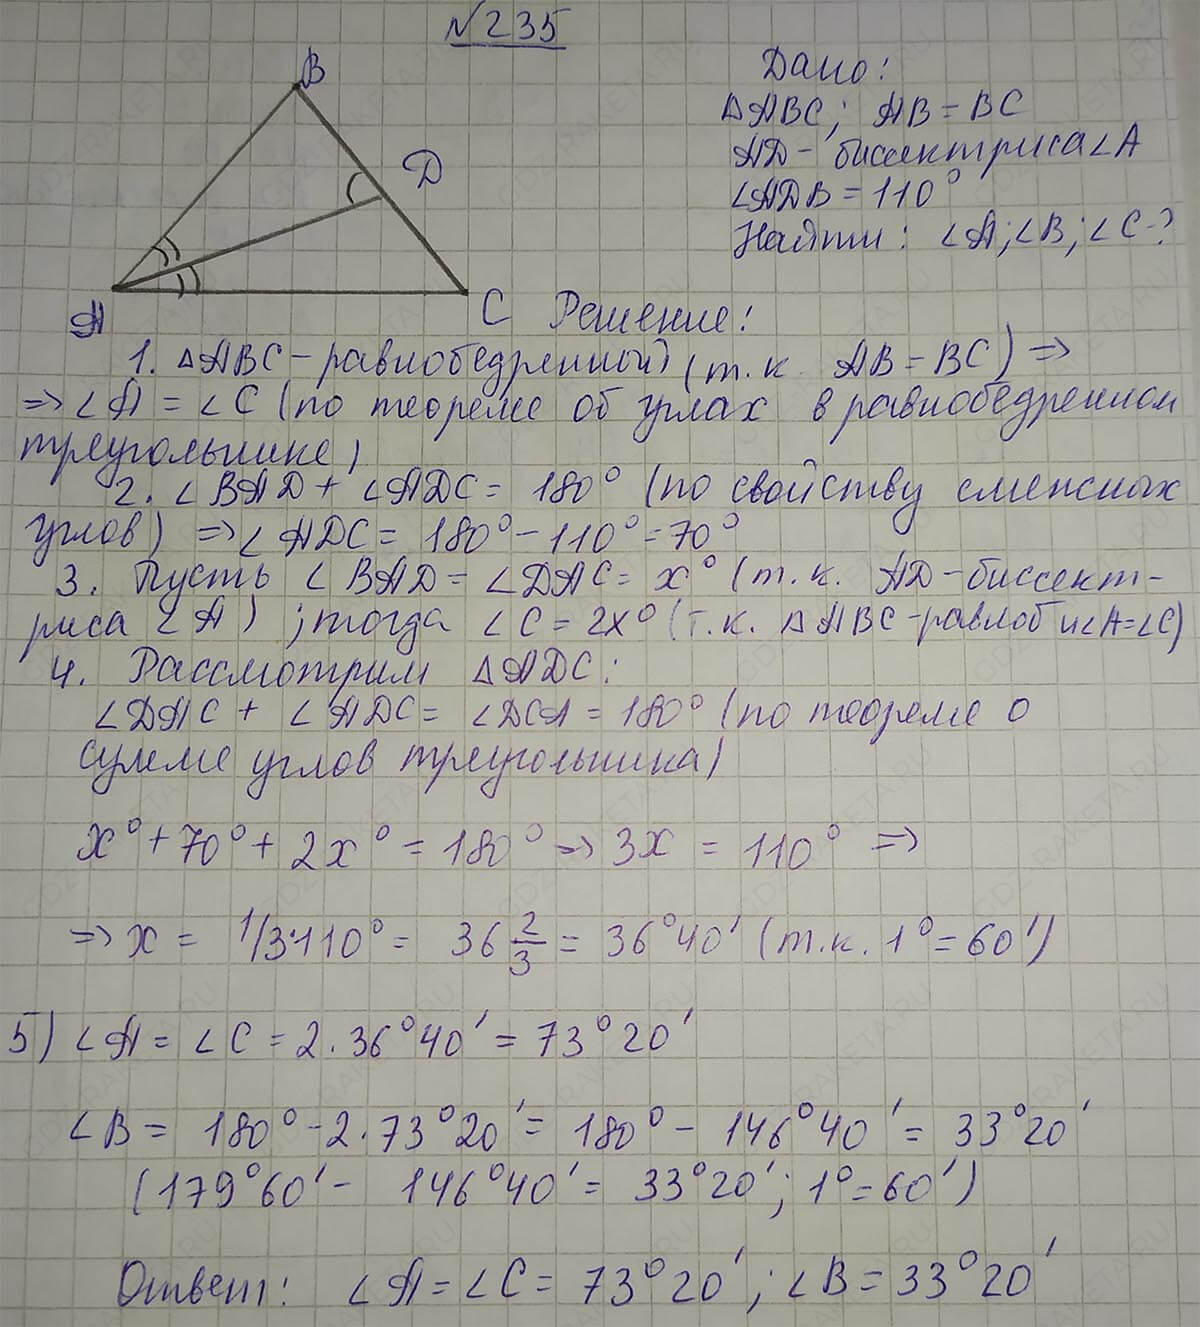 №235
B
D
A
C
Дано:
△ABC; AB = BC
AD - биссектриса∠A
∠ADB = 110°
Найти: ∠A; ∠B; ∠C-?
Решение:
1. △ABC - равнобедренный (т.к. AB = BC) ⇒
⇒ ∠A = ∠C (по теореме об углах в равнобедренном
треугольнике)
2. ∠BAD + ∠ADC = 180° (по свойству смежных
углов) ⇒ ∠ADC = 180° - 110° = 70°
3. Пусть ∠BAD = ∠DAC = x° (т.к. AD - биссект-
риса ∠A); тогда ∠C = 2x° (т.к. △ABC - равноб и∠A=∠C)
4. Рассмотрим △ADC:
∠DAC + ∠ADC = ∠DCA = 180° (по теореме о
сумме углов треугольника)
x° + 70° + 2x° = 180° ⇒ 3x = 110° ⇒
⇒ x = 1/3·110° = 36 2/3 = 36°40' (т.к. 1° = 60')
5) ∠A = ∠C = 2·36°40' = 73°20'
∠B = 180° - 2·73°20' = 180° - 146°40' = 33°20'
(179°60' - 146°40' = 33°20'; 1° = 60')
Ответ: ∠A = ∠C = 73°20'; ∠B = 33°20'